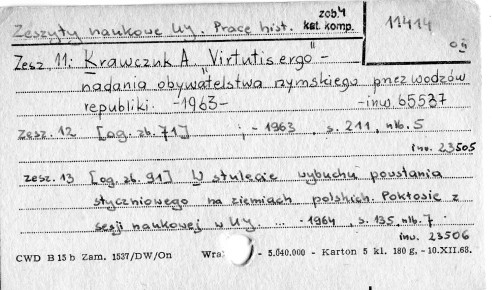 Zeszyty naukowe UJ. Prace hist. zob. 4 kat. komp. 11414
Zesz 11: Krawczuk A. "Virtutis ergo" -
nadania obywatelstwa rzymskiego przez wodzów
republiki. -1963- -inw 65537
Zesz. 12 [og. zb. 71] ; - 1963, s. 211, nlb. 5
inw. 23505
zesz. 13 [og. zb. 91] W stulecie wybuchu powstania
styczniowego na ziemiach polskich. Pokłosie z
sesji naukowej w UJ. - 1964, s. 135, nlb. 7
inw. 23506
CWD B 15 b Zam. 1537/DW/On - 5.040.000 - Karton 5 kl. 180 g, - 10.XII.68.